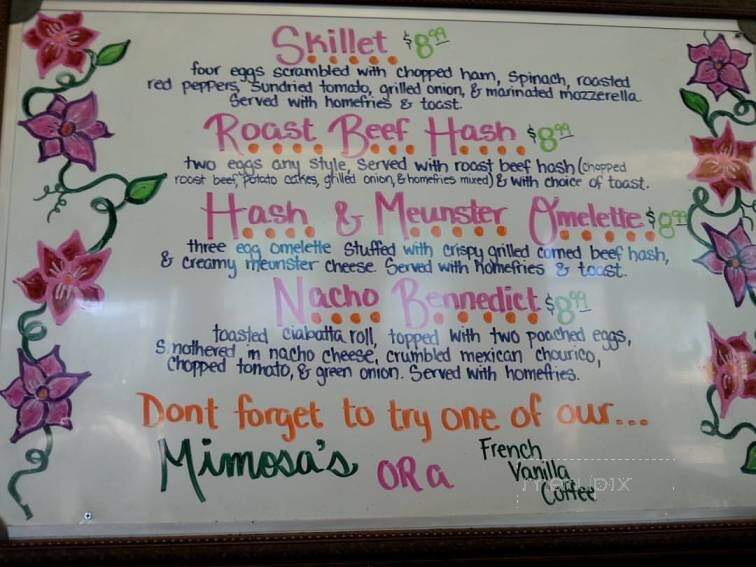 Skillet $8.99
four eggs scrambled with chopped ham, spinach, roasted
red peppers, sundried tomato, grilled onion, & marinated mozzerella
Served with homefries & toast.
Roast Beef Hash $8.99
two eggs any style, served with roast beef hash (chopped
roast beef, potato cakes, grilled onion, & homefries mixed) & with choice of toast.
Hash & Meunster Omelette $8.99
three egg omelette stuffed with crispy grilled corned beef hash,
& creamy meunster cheese. Served with homefries & toast.
Nacho Bennedict $8.99
toasted ciabatta roll, topped with two poached eggs,
smothered in nacho cheese, crumbled mexican chourico,
chopped tomato, & green onion. Served with homefries.
Dont forget to try one of our...
Mimosa's OR a French
Vanilla
Coffee
menupix